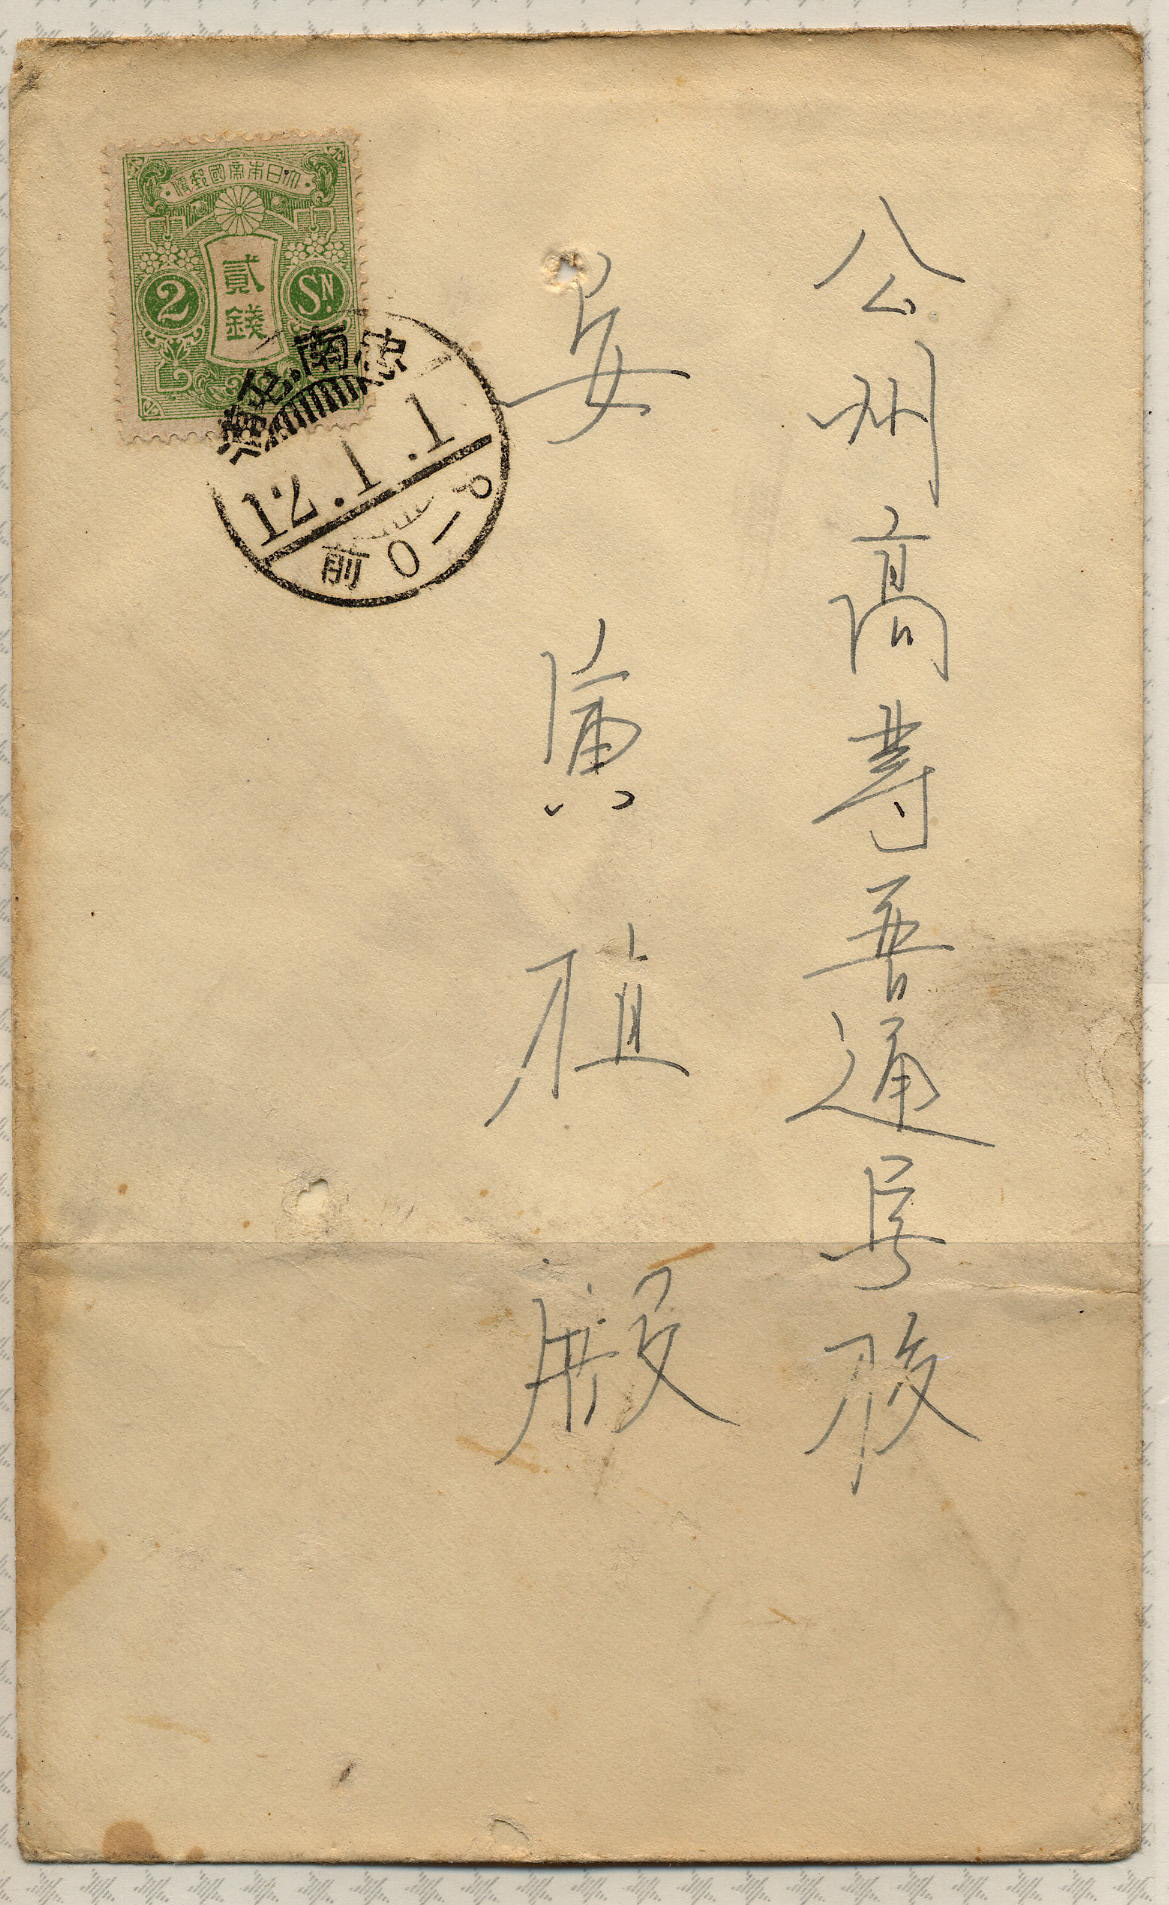 公州高等普通学校
安寅植殿
大日本帝國郵便
貳錢
2 SN.
忠南.屯浦
12.1.1
前0-9